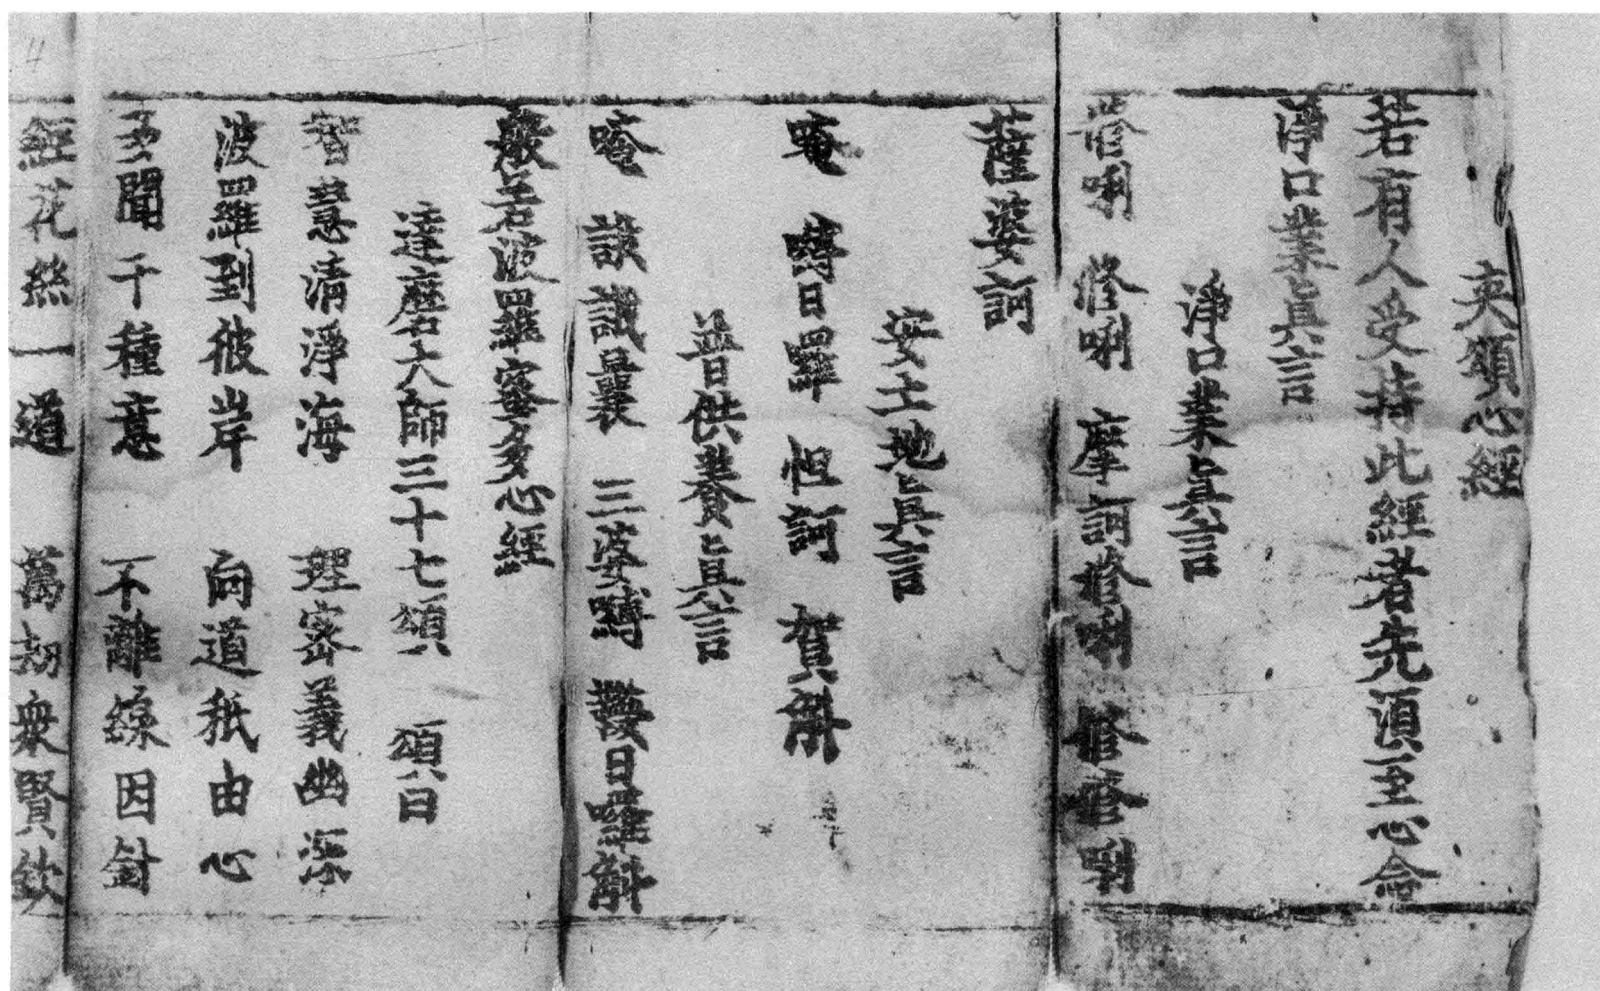 夾頌心經
若有人受持此經者先須至心念
淨口業眞言
淨口業眞言
修唎 修唎 摩訶修唎 修修唎
薩婆訶
安土地眞言
唵 嚩日羅 怛訶 賀斛
普供養眞言
唵 誐誐曩 三婆嚩 韈日羅斛
般若波羅蜜多心經
達磨大師三十七頌 頌曰
智慧清淨海 理密義幽深
波羅到彼岸 向道秖由心
多聞千種意 不離線因針
經花絲一道 萬劫衆賢欽